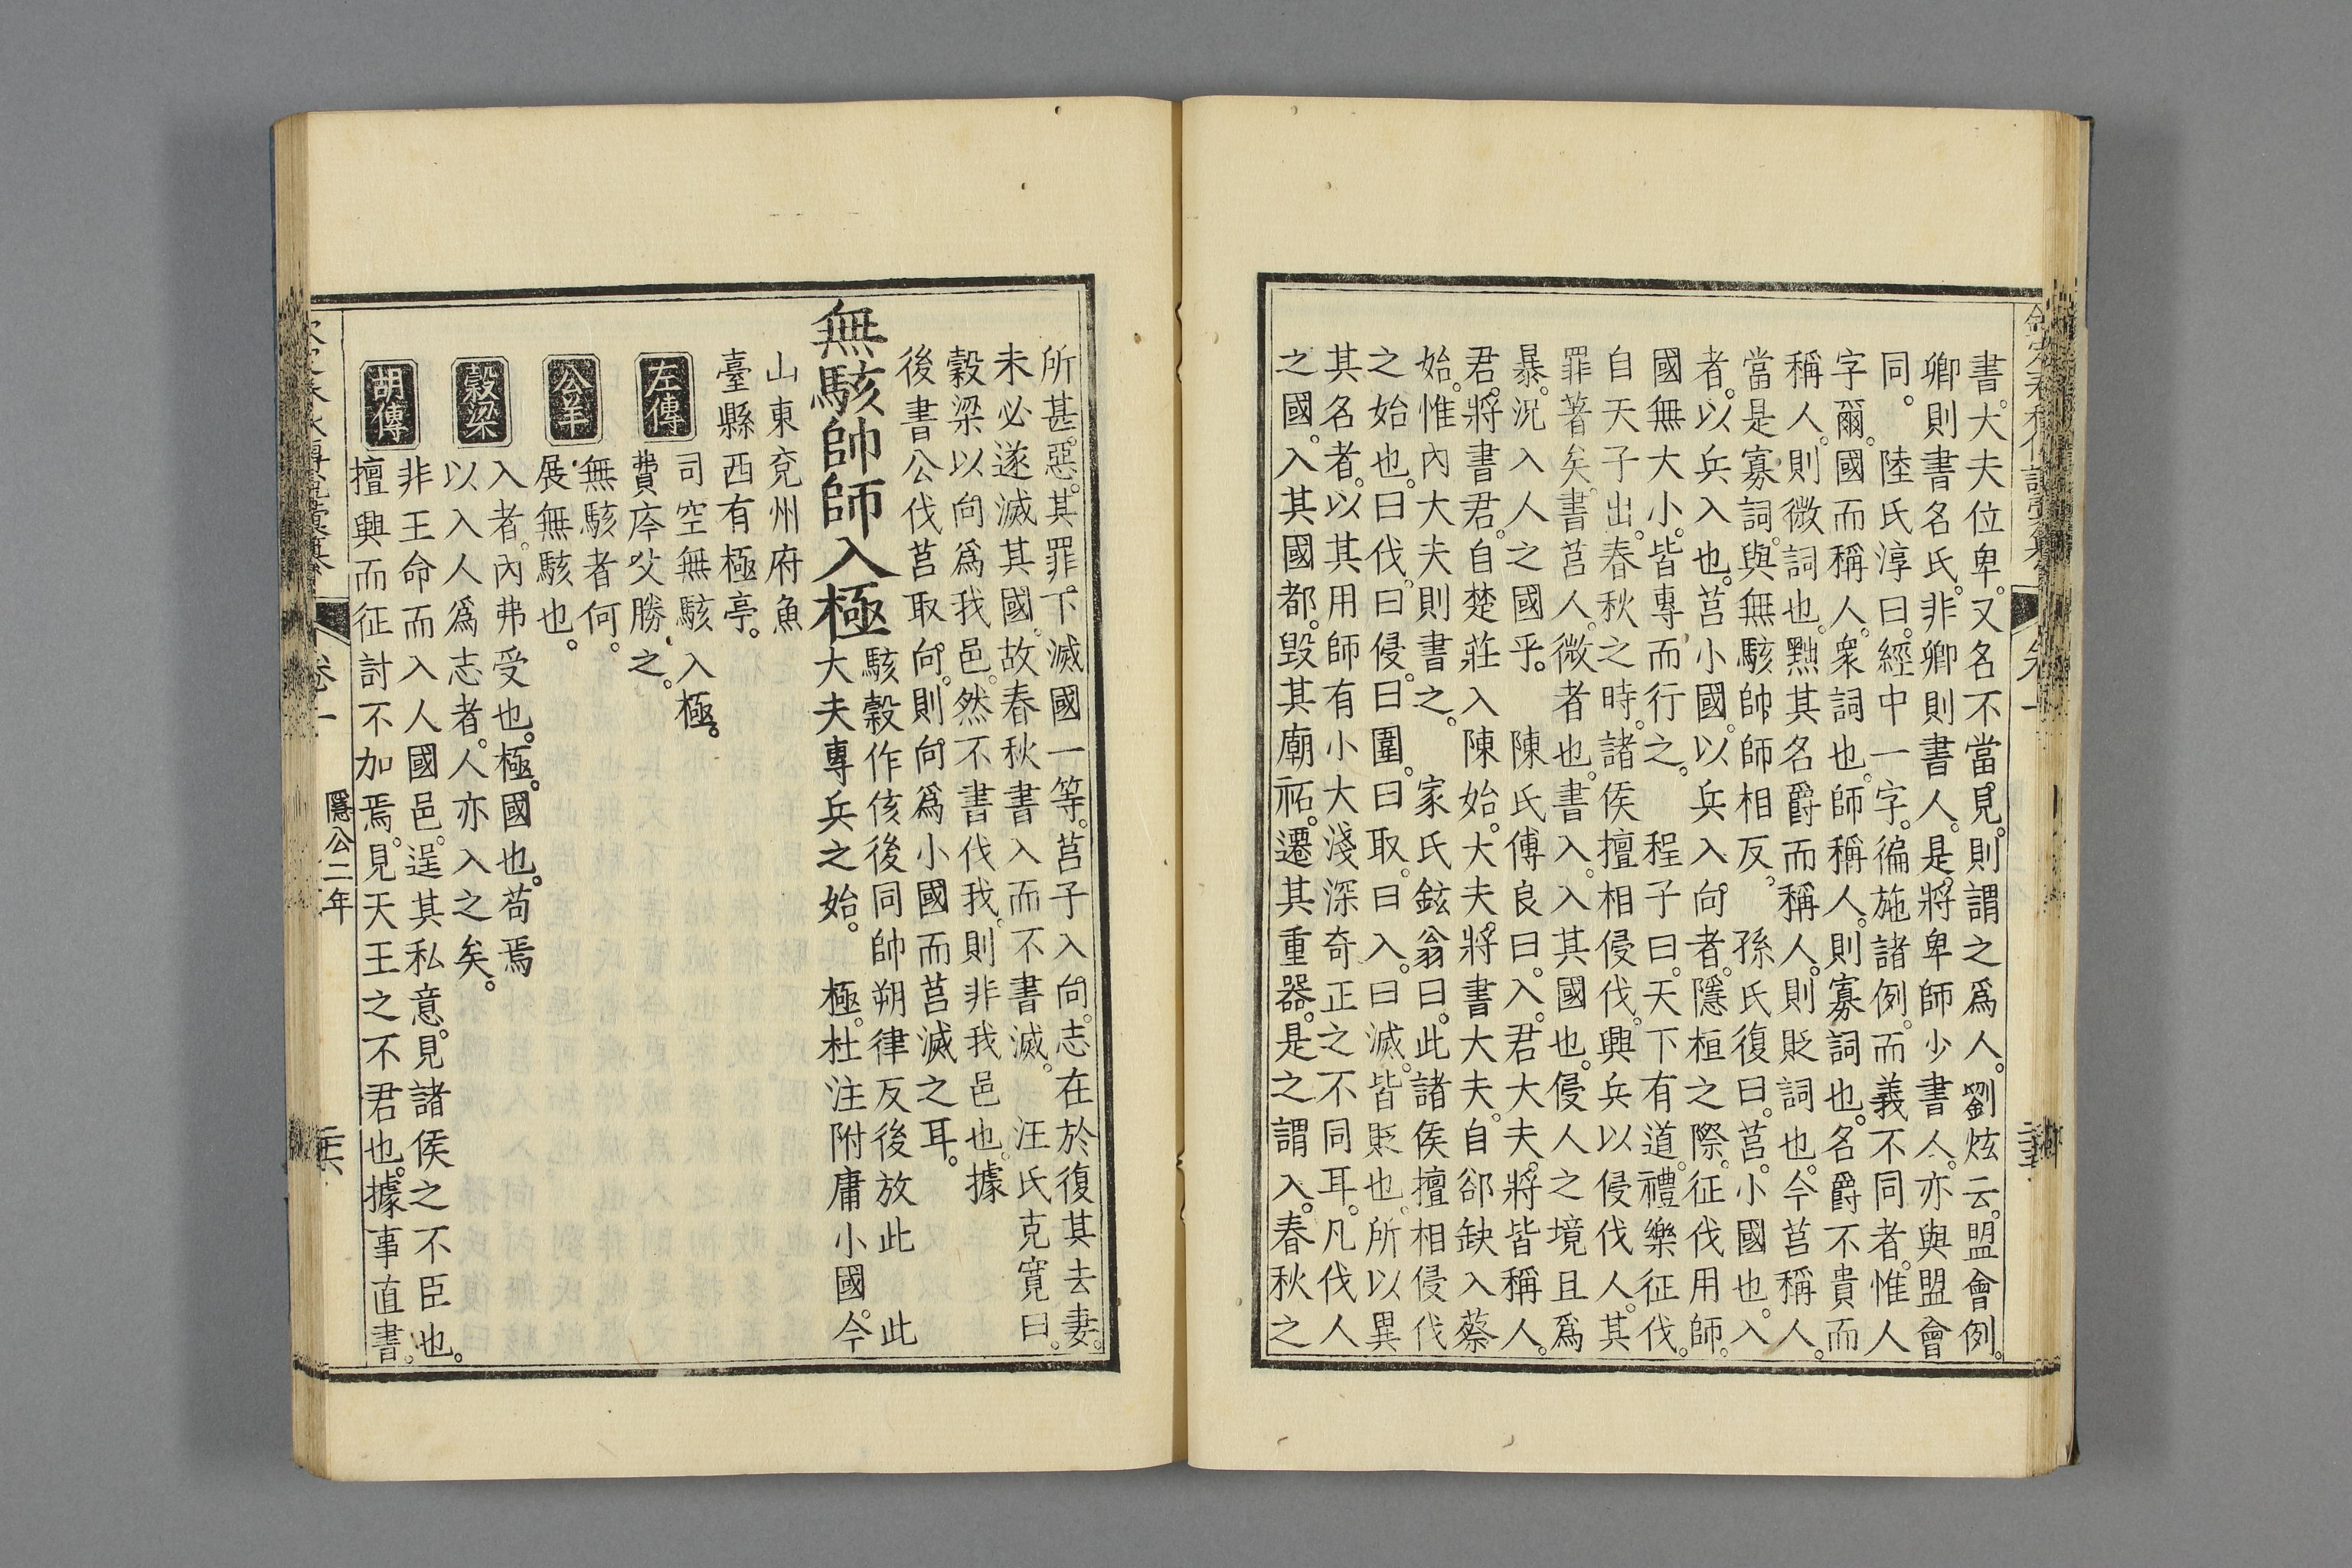 書。大夫位卑。又名不當見。則謂之爲人。劉炫云。盟會例。
卿則書名氏。非卿則書人。是將卑師少書人。亦與盟會
同。 陸氏淳曰。經中一字。徧施諸例。而義不同者。惟人
字爾。國而稱人。衆詞也。師稱人。則寡詞也。名爵不貴而
稱人。則微詞也。黜其名爵而稱人。則貶詞也。今莒稱人。
當是寡詞。與無駭帥師相反。 孫氏復曰。莒。小國也。入
者。以兵入也。莒小國。以兵入向者。隱桓之際。征伐用師。
國無大小。皆專而行之。 程子曰。天下有道。禮樂征伐。
自天子出。春秋之時。諸侯擅相侵伐。興兵以侵伐人。其
罪著矣。書莒人。微者也。書入。入其國也。侵人之境且爲
暴。況入人之國乎。 陳氏傅良曰。入。君大夫將皆稱人。
君。將書君。自楚莊入陳始。大夫。將書大夫。自郤缺入蔡
始。惟內大夫則書之。 家氏鉉翁曰。此諸侯擅相侵伐
之始也。曰伐。曰侵。曰圍。曰取。曰入。曰滅。皆貶也。所以異
其名者。以其用師有小大淺深奇正之不同耳。凡伐人
之國。入其國都。毀其廟祏。遷其重器。是之謂入。春秋之
所甚惡。其罪下滅國一等。莒子入向。志在於復其去妻。
未必遂滅其國。故春秋書入而不書滅。 汪氏克寬曰。
穀梁以向爲我邑。然不書伐我。則非我邑也。據
後書公伐莒取向。則向爲小國而莒滅之耳。
無駭帥師入極
駭穀作侅後同帥朔律反後放此 此
大夫專兵之始。 極。杜注附庸小國。今
山東兗州府魚
臺縣西有極亭。
左傳
司空無駭入極。
費庈父勝之。
公羊
無駭者何。
展無駭也。
穀梁
入者。內弗受也。極。國也。苟焉
以入人爲志者。人亦入之矣。
胡傳
非王命而入人國邑。逞其私意。見諸侯之不臣也。
擅興而征討不加焉。見天王之不君也。據事直書。
卷一
隱公二年